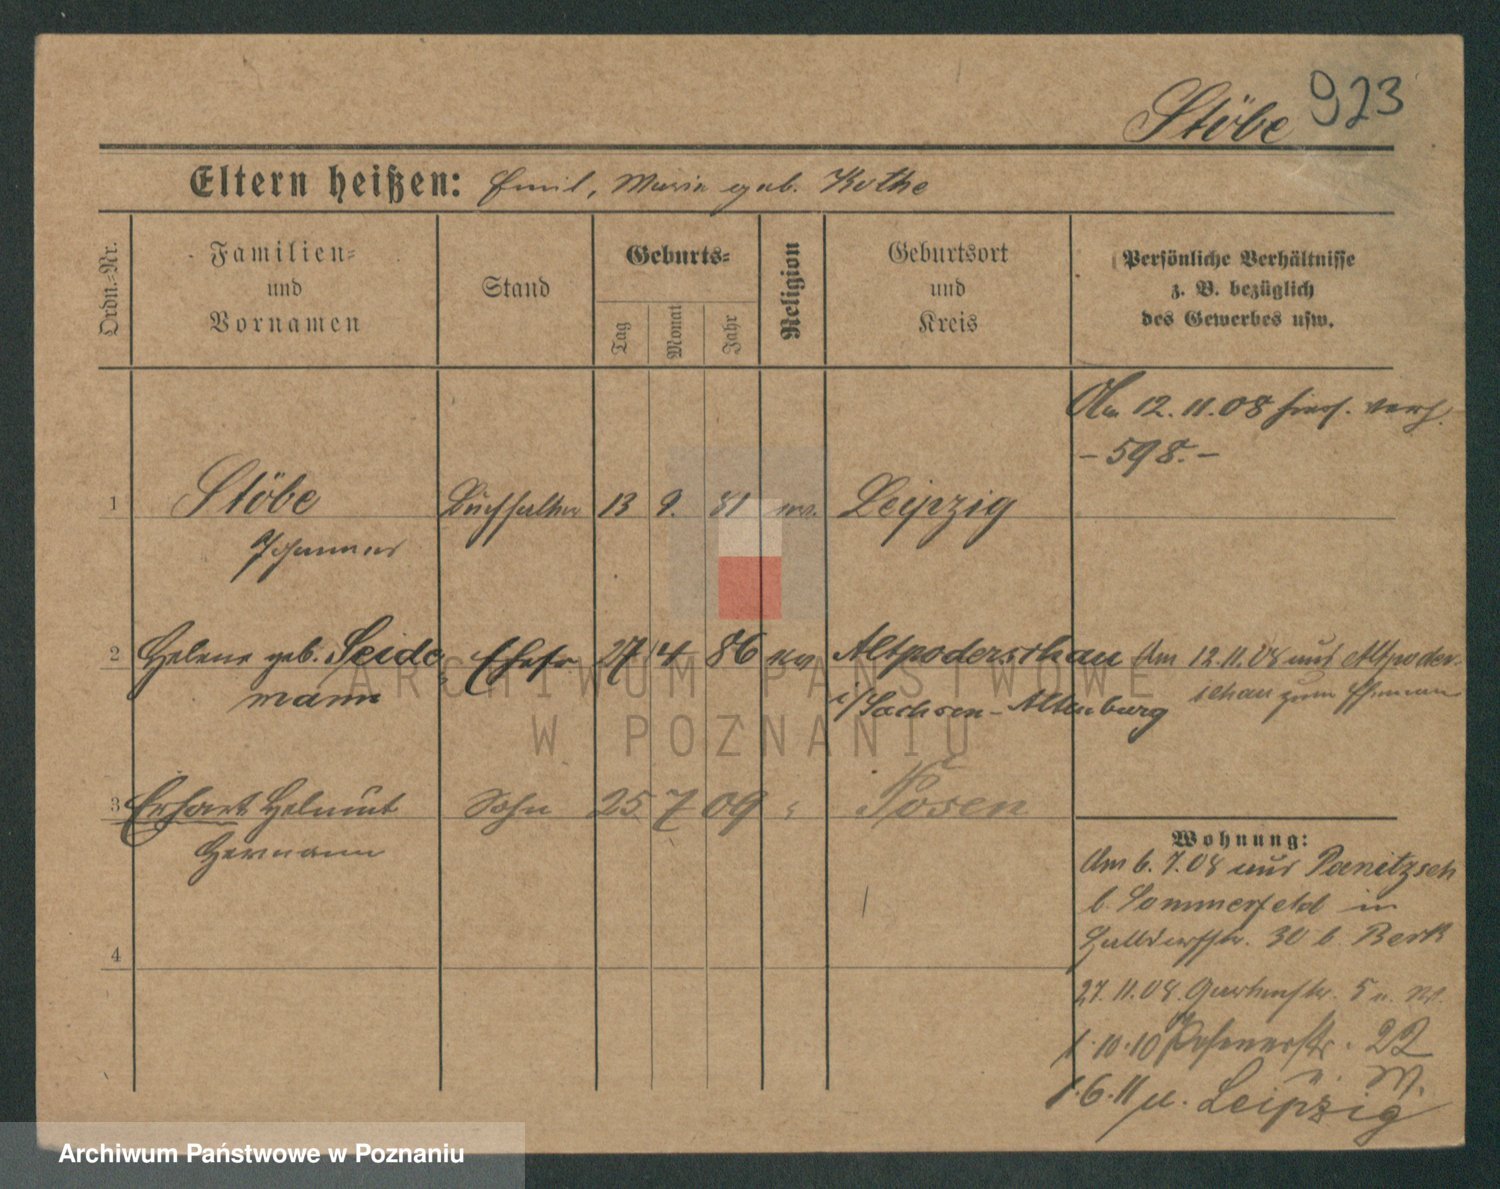 Stöbe 923
Eltern heißen: Emil, Maria geb. Kothe
Ordn.-Nr.
Familien-
und
Vornamen
Stand
Geburts-
Tag
Monat
Jahr
Religion
Geburtsort
und
Kreis
Persönliche Verhältnisse
z. B. bezüglich
des Gewerbes usw.
Am 12.11.08 hies. verh.
- 598. -
1 Stöbe Buchhalter 13 9. 81 ev. Leipzig
Johannes
2 Helene geb. Seide Ehefr 27 4 86 ev Altpoderschau Am 12.11.08 aus Altpoder-
mann i/Sachsen-Altenburg schau zum Ehemann
3 Erhart Helmut Sohn 25 7 09 " Posen
Hermann
Wohnung:
Am 6.7.08 aus Panitzsch
b. Sommerfeld in
30 b.
4
27.11.08. Gartenstr. 5 u. M.
1.10.10 Posenerstr. 22
u. M.
1.6.11 u. Leipzig
ARCHIWUM PAŃSTWOWE
W POZNANIU
Archiwum Państwowe w Poznaniu